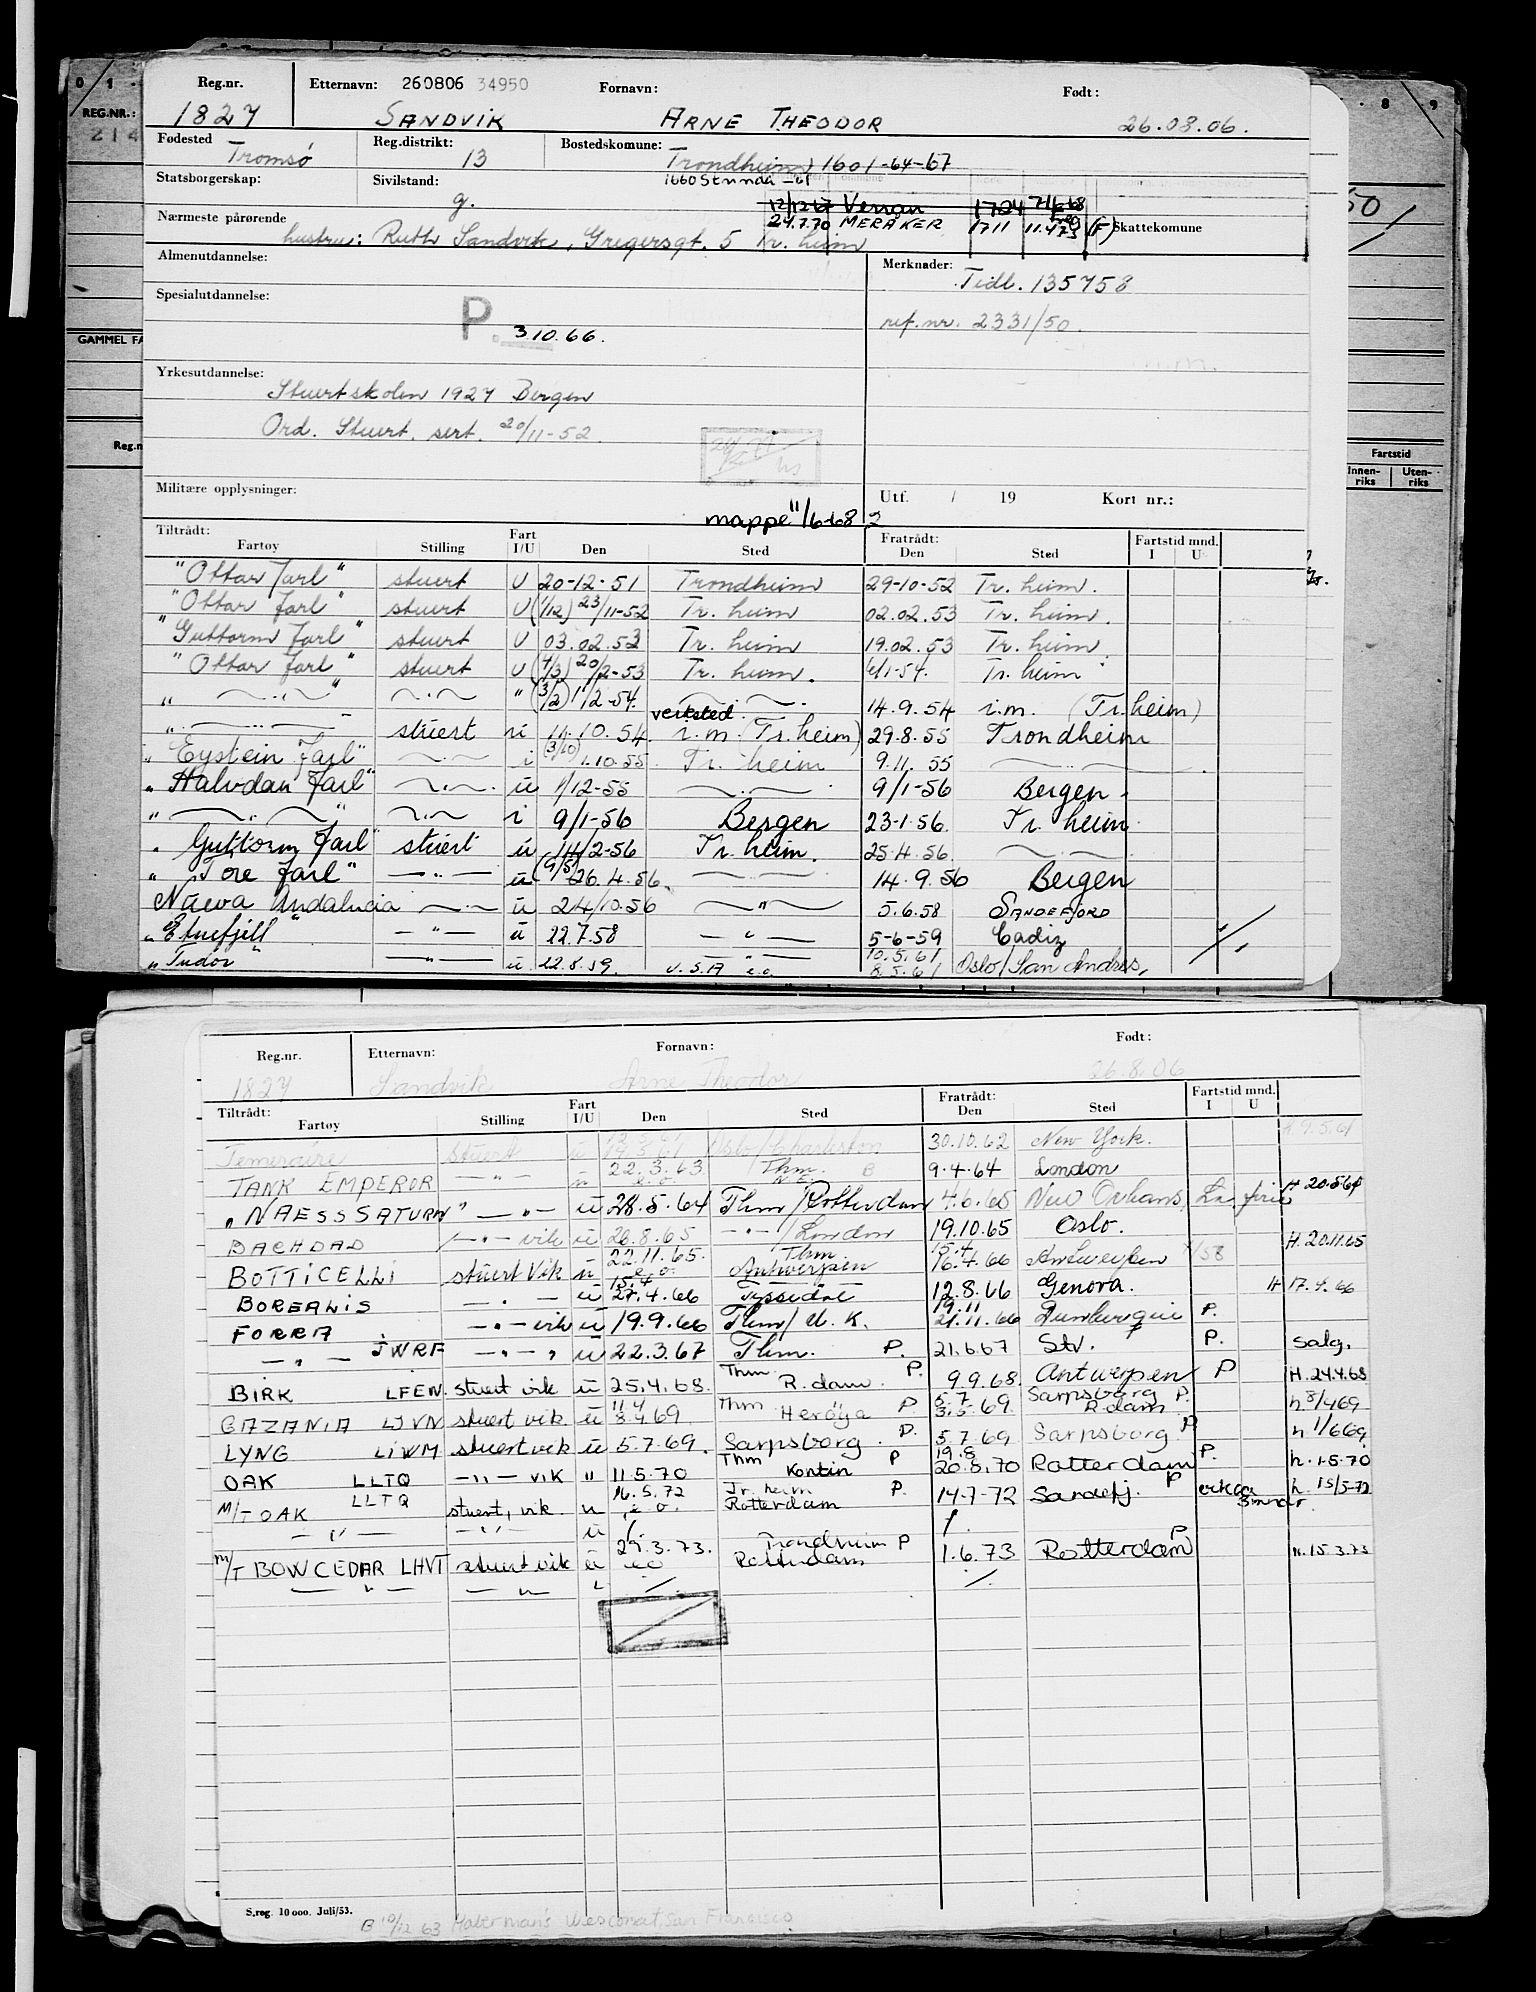 REG.NR.:
214
GAMMEL FA
Reg.nr. Etternavn: 260806 34950 Fornavn: Født:
1827 SANDVIK ARNE THEODOR 26.08.06.
Fødested Reg.distrikt: Bostedskomune:
Tromsø 13 Trondheim 1601-64-67
Statsborgerskap: Sivilstand: 1660 Strinda -61
g. 12/12-67 Verran 1724 7/6-68
24.7.70 MERAKER 1711 11.4.73 (F) Skattekomune
Nærmeste pårørende
hustru: Ruth Sandvik, Gregersgt. 5 Tr. heim
Almenutdannelse: Merknader: Tidl. 135758
Spesialutdannelse: ref.nr. 2331/50.
P. 3.10.66.
Yrkesutdannelse:
Stuertskolen 1927 Bergen
Ord. Stuert. sert. 20/11-52.
Militære opplysninger: Utf. / 19 Kort nr.:
mappe 11/6-68 2
Tiltrådt: Fartøy Stilling Fart I/U Den Sted Fratrådt: Den Sted Fartstid mnd. I U
"Ottar Jarl" stuert U 20-12-51 Trondheim 29-10-52 Tr. heim.
"Ottar Jarl" stuert U (1/12) 23/11-52 Tr. heim 02.02.53 Tr. heim.
"Guttorm Jarl" stuert U 03.02.53 Tr. heim 19.02.53 Tr. heim.
"Ottar Jarl" stuert U (4/3) 20/2-53 Tr. heim. 6/1-54. Tr. heim
" — " — " (3/2) 1/2-54. — . — . 14.9.54 i.m. (Tr.heim)
verksted
" — — stuert i 11.10.54 i.m. (Tr.heim) 29.8.55 Trondheim
"Eystein Jarl" — i (3/10) 1.10.55 Tr. heim 9.11.55 —
"Halvdan Jarl" — u 1/12-55 — 9/1-56 Bergen.
" — " — i 9/1-56 Bergen 23-1-56. Tr. heim
"Guttorm Jarl" stuert u 14/2-56 Tr. heim. 25.4.56. —
"Tore Jarl" — " — u (9/5) 26.4.56. — 14.9.56 Bergen
Nueva Andalucia — u 24/10.56 — " — 5.6.58 SANDEFJORD
"Etnefjell" — " — u 22.7.58 — " — 5-6-59 Cadiz
"Tudor" — " — u 22.8.59. U.S.A e.o. 10.5.61 8.5.61 Oslo/San Andres,
Innenriks Utenriks
Fartstid
Reg.nr. Etternavn: Fornavn: Født:
1827 Sandvik Arne Theodor 26.8.06
Tiltrådt: Fartøy Stilling Fart I/U Den Sted Fratrådt: Den Sted Fartstid mnd. I U
Temeraire stuert u Oslo/Charleston 30.10.62 New York. H 9.5.61
TANK EMPEROR — " — u 22.3.63 e.o. Thm. B 9.4.64 London
"NAESS SATURN" — " — u 28.5.64 Thm/Rotterdam 4.6.65 New Orleans, H 20.5.64
BAGHDAD — " — vik u 26.8.65 — " — /London 19.10.65 Oslo.
BOTTICELLI stuert Vik u 22.11.65. e.o. Thm. Antwerpen 15.4 16.4.66 Antwerpen H. 20.11.65
BOREALIS — . — u 15.4 27.4.66 Tyssedal 12.8.66 Genova. H 17.4.66
FORRA — " — vik u 19.9.66 Thm/U.K. 19.11 21.11.66 Dunkerque P.
— " — JWRF — " — " u 22.3.67 Thm. P. 21.6.67 Stv. P. salg.
BIRK LFEN. stuert vik u 25.4.68. Thm R.dam. P. 9.9.68 Antwerpen P H.24.4.68
GAZANIA LJVN stuert vik u 11.4 8.4.69 Thm Herøya P 5.7 3.5.69 Sarpsborg R.dam P. h 8/4 69
LYNG LIWM stuert vik u 5.7.69. Sarpsborg P. 5.7.69 Sarpsborg P. h 1/6 69
OAK LLTQ — " — VIK " 11.5.70 Thm Kontin P 19.8 20.8.70 Rotterdam P. h. 1.5.70
M/T OAK LLTQ stuert, vik. u 16.5.72 e.o. Tr. heim Rotterdam P. 14-7-72 Sandefj. P h. 15/5-72
— " — — " — u /. /.
M/T BOW CEDAR LHVT stuert vik u 29.3.73. Trondheim P Rotterdam 1.6.73 Rotterdam P h. 15.3.73
— " — — " — /. /.
S.reg. 10 000. Juli/53.
B 10/12 63 San Francisco